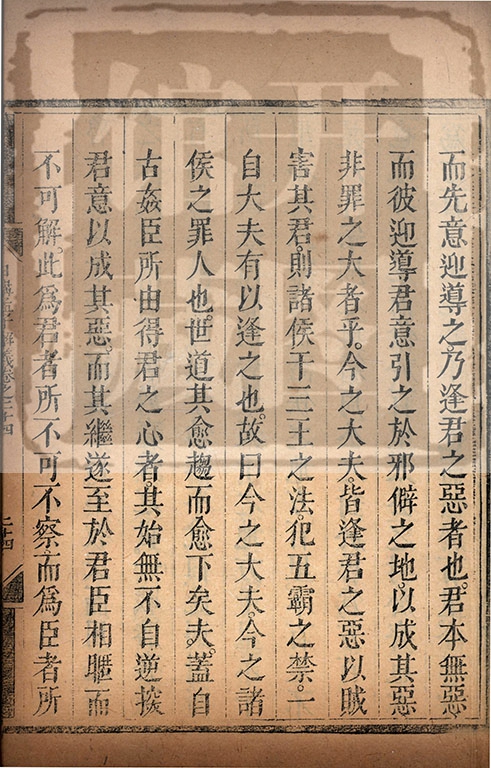 而先意迎導之。乃逢君之惡者也。君本無惡、
而彼迎導君意引之於邪僻之地。以成其惡
非罪之大者乎。今之大夫。皆逢君之惡以賊
害其君。則諸侯干三王之法。犯五霸之禁。一
自大夫有以逢之也。故曰今之大夫。今之諸
侯之罪人也。世道其愈趨而愈下矣夫。蓋自
古姦臣所由得君之心者。其始無不自逆揆
君意以成其惡。而其繼遂至於君臣相暱而
不可解。此爲君者所不可不察。而爲臣者所
日講
解義卷之二十四
二十四